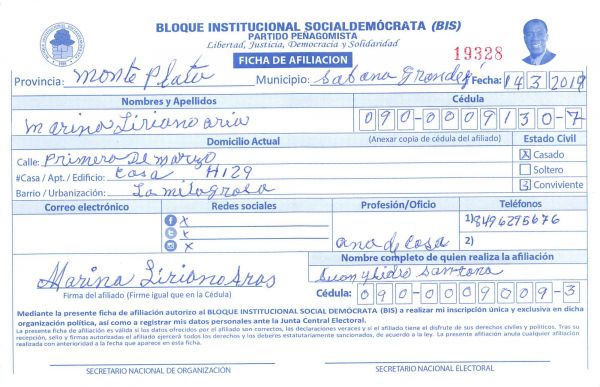 BLOQUE INSTITUCIONAL SOCIALDEMÓCRATA (BIS)
PARTIDO PEÑAGOMISTA
Libertad, Justicia, Democracia y Solidaridad
FICHA DE AFILIACION
19328
Provincia: Monte Plata Municipio: Sabana Grande Fecha: 14 3 2019
Nombres y Apellidos Cédula
Marina Liriano aria 090-0009130-7
Domicilio Actual (Anexar copia de cédula del afiliado) Estado Civil
Calle: Primera De Marzo X Casado
#Casa / Apt. / Edificio: Casa H129 Soltero
Barrio / Urbanización: La milagrosa 3 Conviviente
Correo electrónico Redes sociales Profesión/Oficio Teléfonos
X 1) 8496295676
X ama de Casa 2)
X
Nombre completo de quien realiza la afiliación
Marina Liriano Juan Ysidro Santana
Firma del afiliado (Firme igual que en la Cédula) Cédula: 090-0009009-3
Mediante la presente ficha de afiliación autorizo al BLOQUE INSTITUCIONAL SOCIAL DEMÓCRATA (BIS) a realizar mi inscripción única y exclusiva en dicha
organización política, así como a registrar mis datos personales ante la Junta Central Electoral.
La presente ficha de afiliación es válida si los datos ofrecidos por el afiliado son correctos, las declaraciones veraces y si el afiliado tiene el disfrute de sus derechos civiles y políticos. Tras su
recepción, sello y firmas autorizadas el afiliado ejercerá todos los derechos y los deberes estatutariamente sancionados, de acuerdo a la ley. La presente afiliación anula cualquier afiliación
realizada con anterioridad a la fecha que aparece en esta ficha.
SECRETARIO NACIONAL DE ORGANIZACIÓN SECRETARIO NACIONAL ELECTORAL